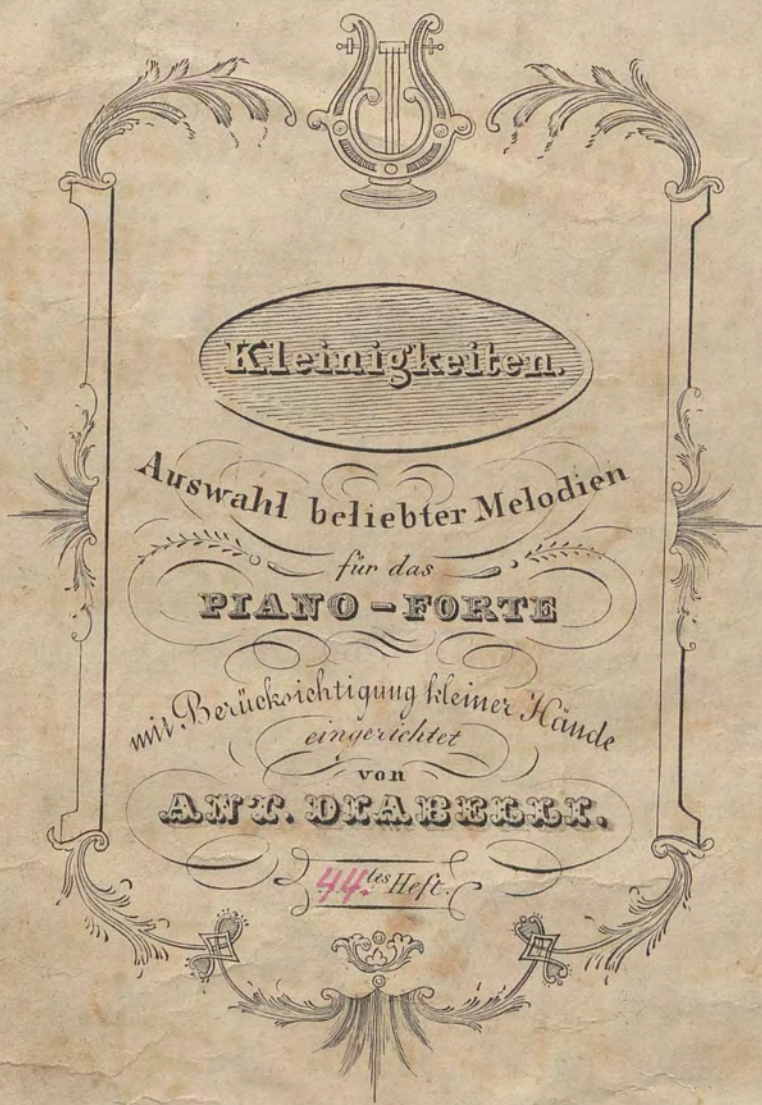 Kleinigkeiten.
Auswahl beliebter Melodien
für das
PIANO-FORTE
mit Berücksichtigung kleiner Hände
eingerichtet
von
ANT. DIABELLI.
44.tes Heft.